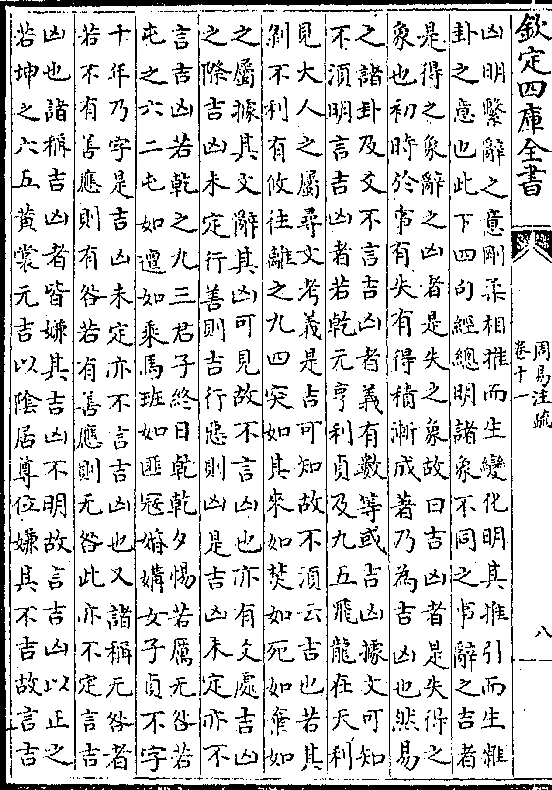 欽定四庫全書
周易注疏
卷十一
八
凶明繫辭之意剛柔相推而生變化明其推引而生雜
卦之意也此下四句經總明諸象不同之事辭之吉者
是得之象辭之凶者是失之象故曰吉凶者是失得之
象也初時於事有失有得積漸成著乃為吉凶也然易
之諸卦及爻不言吉凶者義有數等或吉凶據文可知
不須明言吉凶者若乾元亨利貞及九五飛龍在天利
見大人之屬尋文考義是吉可知故不須云吉也若其
剝不利有攸往離之九四突如其來如焚如死如棄如
之屬據其文辭其凶可見故不言凶也亦有爻處吉凶
之際吉凶未定行善則吉行惡則凶是吉凶未定亦不
言吉凶若乾之九三君子終日乾乾夕惕若厲无咎若
屯之六二屯如邅如乘馬班如匪寇婚媾女子貞不字
十年乃字是吉凶未定亦不言吉凶也又諸稱无咎者
若不有善應則有咎若有善應則无咎此亦不定言吉
凶也諸稱吉凶者皆嫌其吉凶不明故言吉凶以正之
若坤之六五黄裳元吉以陰居尊位嫌其不吉故言吉